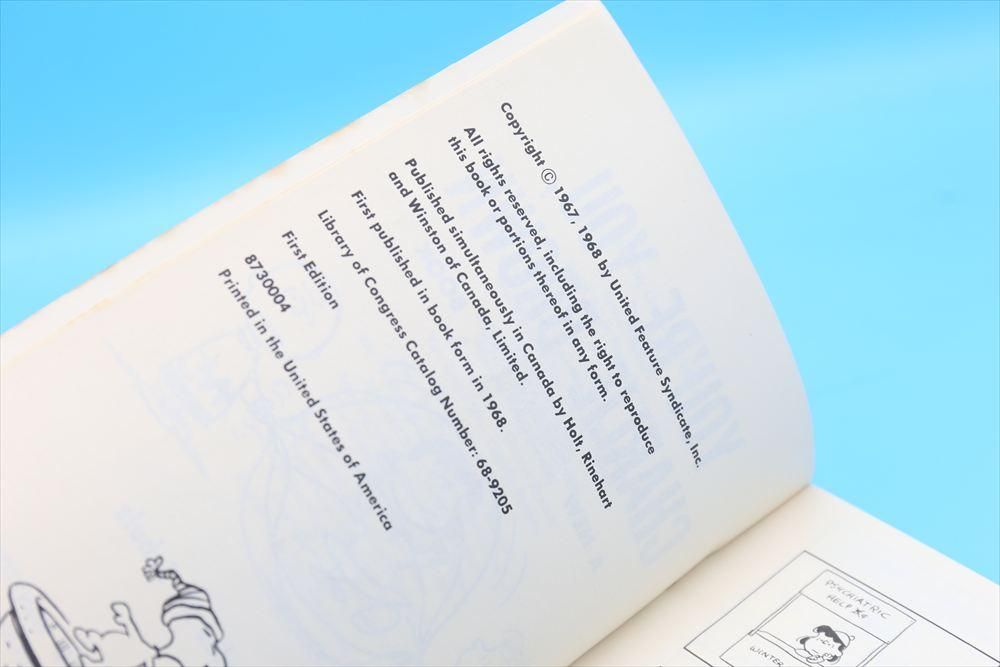 Copyright © 1967, 1968 by United Feature Syndicate, Inc.
All rights reserved, including the right to reproduce
this book or portions thereof in any form.
Published simultaneously in Canada by Holt, Rinehart
and Winston of Canada, Limited.
First published in book form in 1968.
Library of Congress Catalog Number: 68-9205
First Edition
8730004
Printed in the United States of America
PSYCHIATRIC
HELP
WINTER